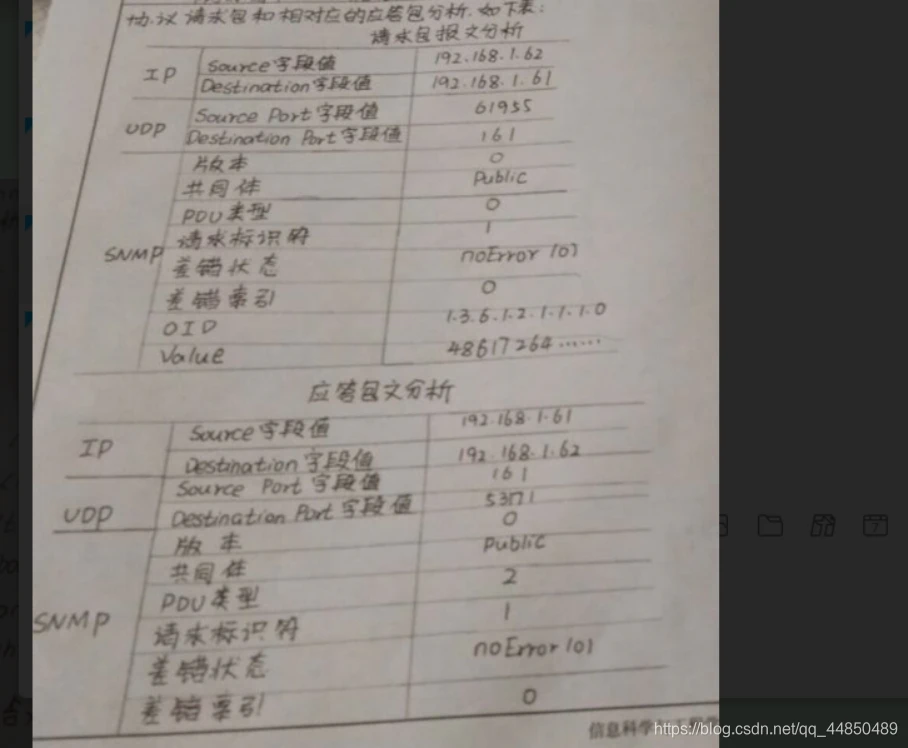 协议请求包和相对应的应答包分析.如下表:
请求包报文分析
IP Source字段值 192.168.1.62
Destination字段值 192.168.1.61
UDP Source Port字段值 61955
Destination Port字段值 161
版本 0
共同体 Public
PDU类型 0
SNMP 请求标识符 1
差错状态 noError (0)
差错索引 0
OID 1.3.6.1.2.1.1.1.0
Value 48617264......
应答包文分析
IP Source字段值 192.168.1.61
Destination字段值 192.168.1.62
Source Port字段值 161
UDP Destination Port字段值
版本 0
共同体 Public
PDU类型 2
SNMP 请求标识符 1
差错状态 noError (0)
差错索引 0
信息科学
https://blog.csdn.net/qq_44850489